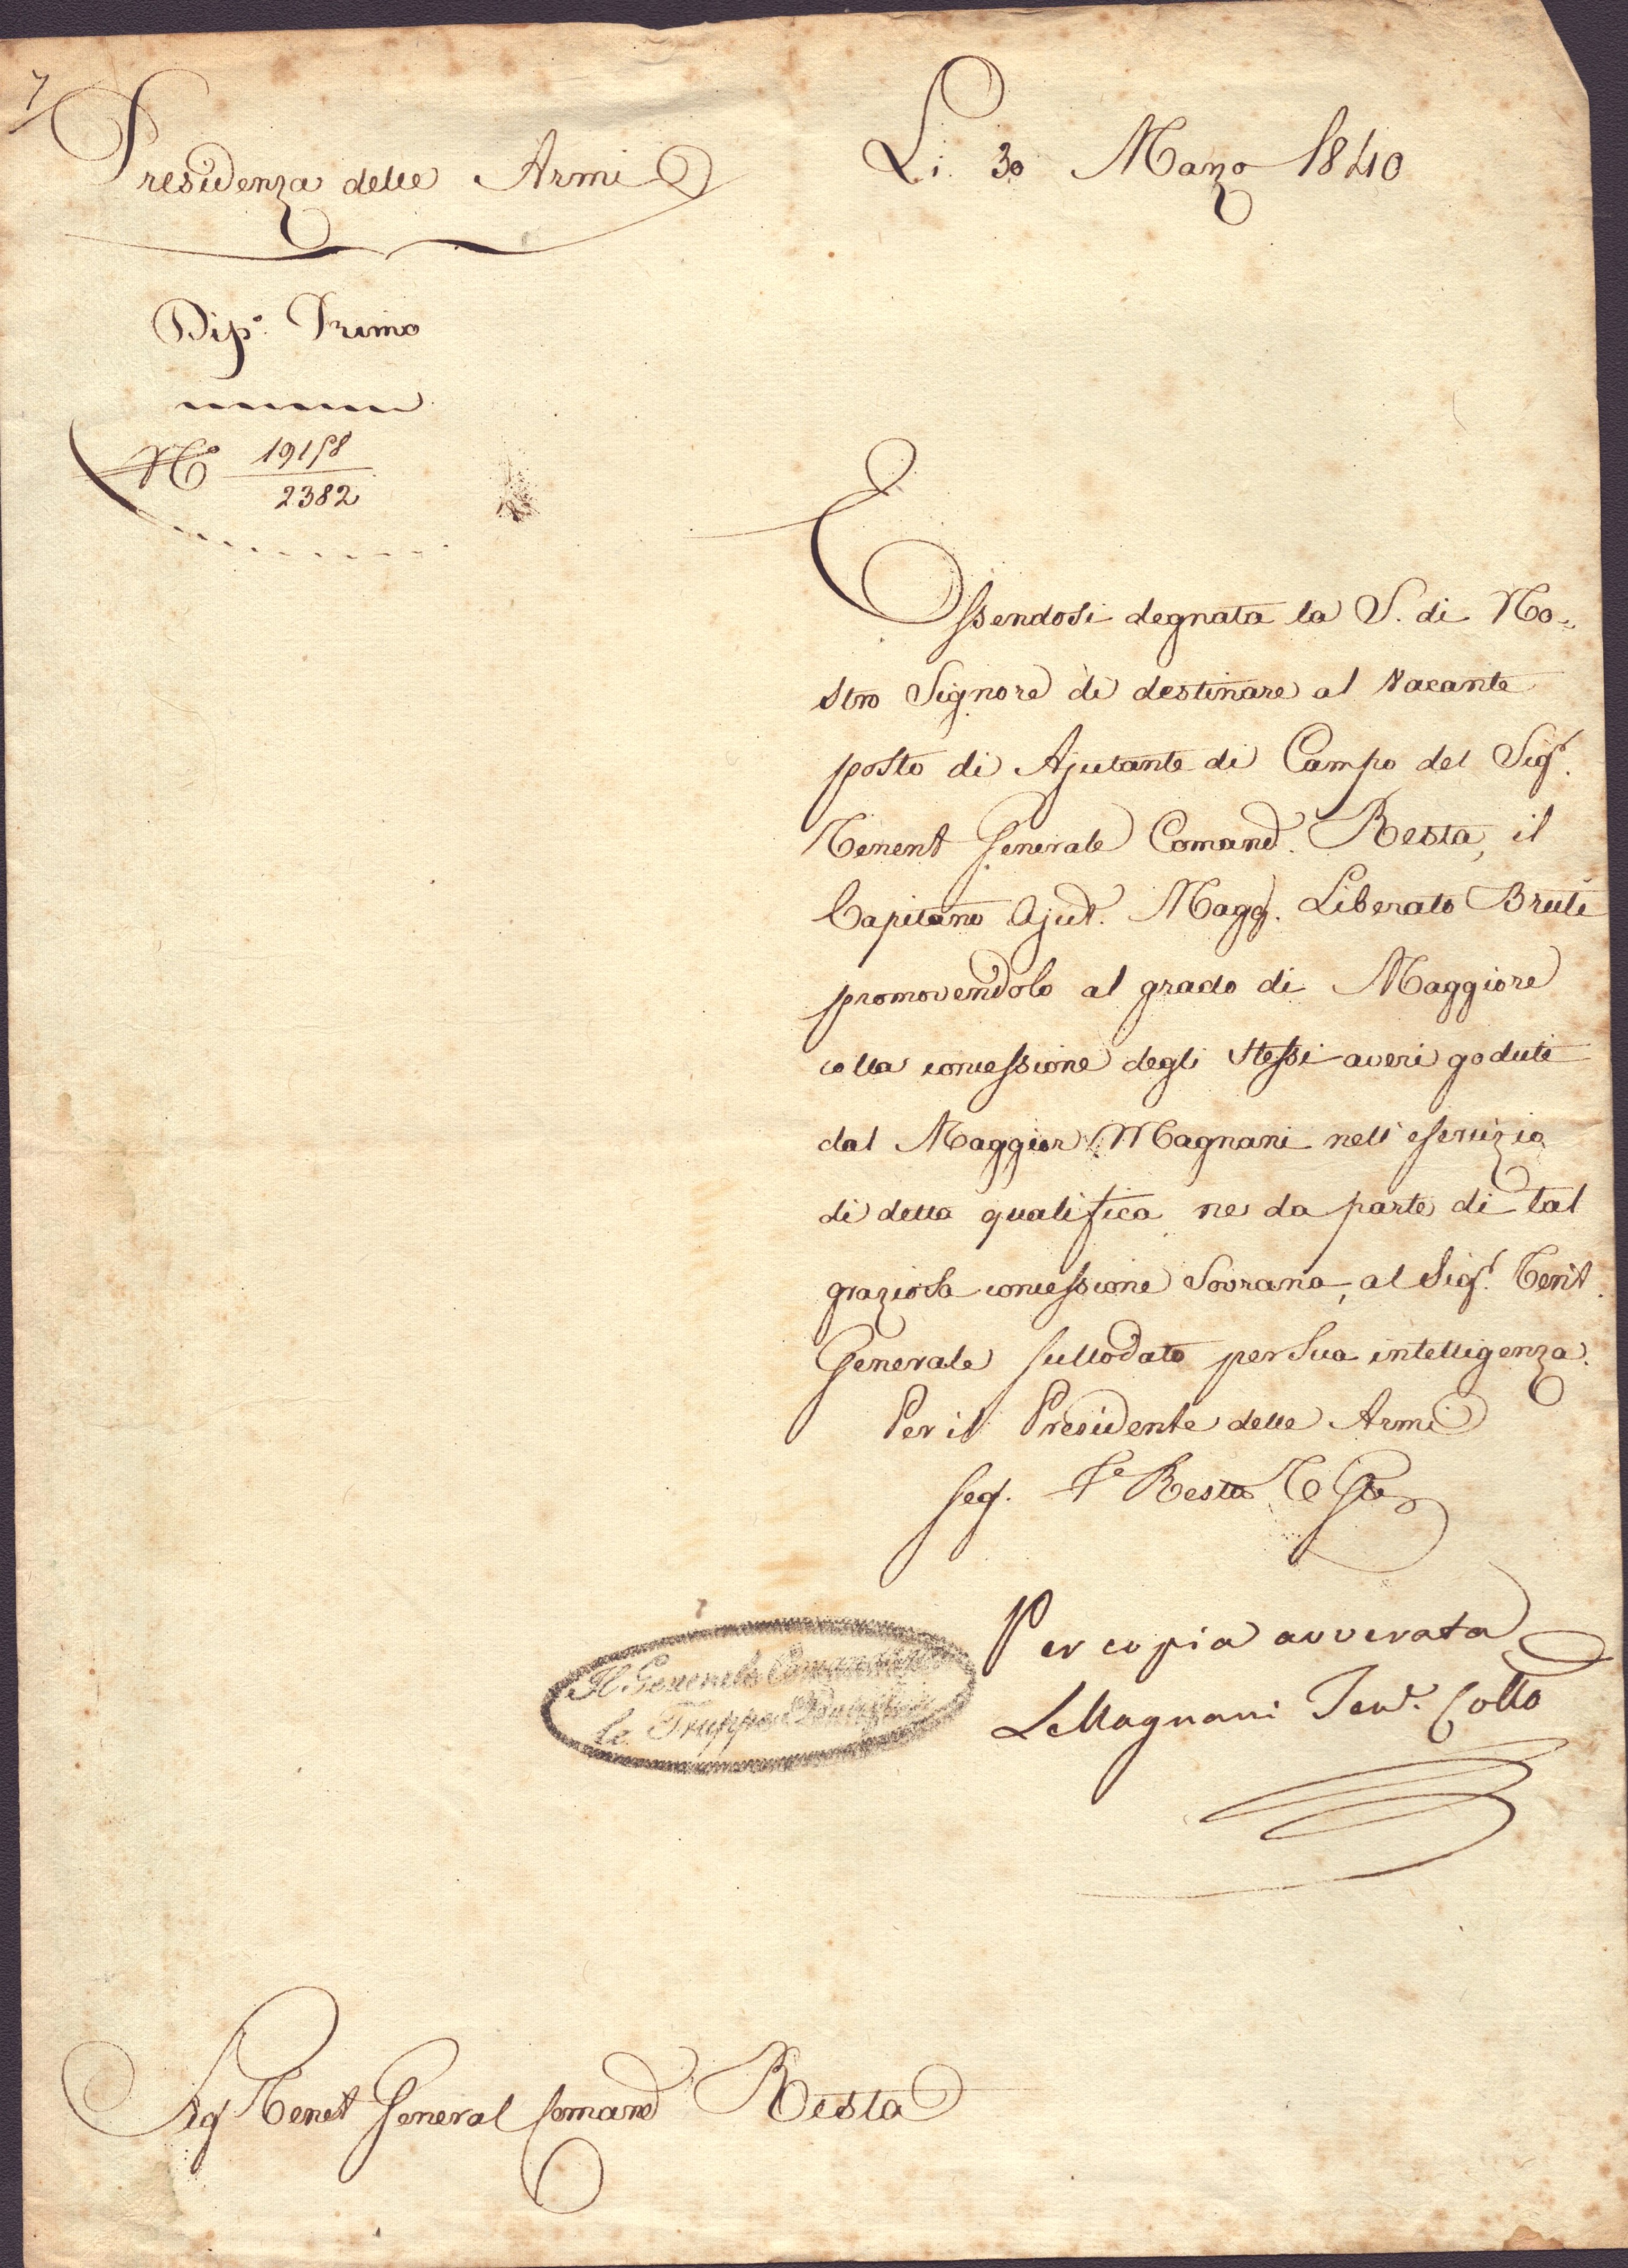 7
Presidenza delle Armi
Li 30 Marzo 1840
Dip.o Primo
N.o 19158
2382
Essendosi degnata la S. di No-
stro Signore di destinare al vacante
posto di Ajutante di Campo del Sig.r
Tenent Generale Comand. Resta, il
Capitano Ajut. Magg. Liberato Bruti
promovendolo al grado di Maggiore
colla concessione degli stessi averi goduti
dal Maggior Magnani nell'esercizio
di detta qualifica ne da parte di tal
graziosa concessione Sovrana, al Sig.r Tent.
Generale sullodato per sua intelligenza.
Per il Presidente delle Armi
seg. F.e Resta T. Gle
Per copia avverata
L Magnani Ten. Collo
Il Generale Comandante
le Truppe Pontificie
Sig Tenet General Comand Resta